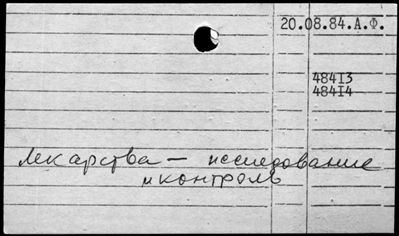 20.08.84.А.Ф.
484I3
484I4
Лекарства — исследование
и контроль